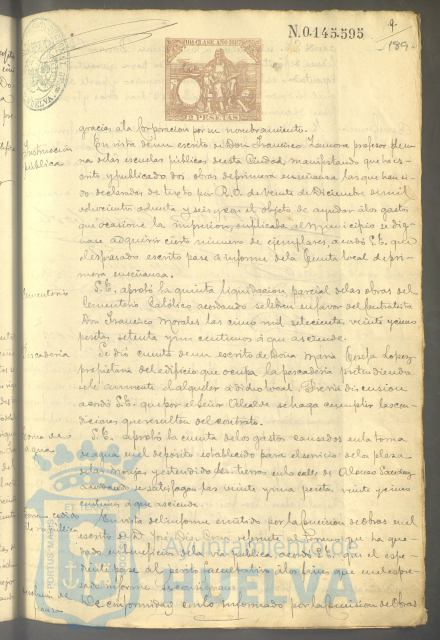 N.0.145.595
9
189
10ª CLASE AÑO DE
2 PESETAS
HUELVA
gracias á la Corporacion por su nombramiento.
Instruccion pública
En vista de un escrito de Don Francisco Zamora profesor de una
de las escuelas públicas de esta Ciudad, manifestando que ha es-
crito y publicado dos obras de primera enseñanza las que han si-
do declaradas de texto por R. O. de veinte de Diciembre de mil
ochocientos ochenta y seis y con el objeto de ayudar á los gastos
que ocasione la impresion, suplicaba al Municipio se dig-
nase adquirir cierto número de ejemplares, acordó S. E. que
el expresado escrito pase á informe de la Junta local de pri-
mera enseñanza.
Cementerio
S. E. aprobó la quinta liquidacion parcial de las obras del
Cementerio Católico acordando se libren en favor del contratista
Don Francisco Morales las cinco mil setecientas veinte y cinco
pesetas setenta y un centimos á que asciende.
Pescaderia
Se dió cuenta de un escrito de Doña Maria Josefa Lopez
propietaria del edificio que ocupa la pescaderia pretendiendo
se le aumente el alquiler á dicho local. Previa discusion
acordó S. E. que por el Señor Alcalde se haga cumplir las con-
diciones que resulten del contrato.
Toma de agua
S. E. aprobó la cuenta de los gastos causados en la toma
de agua en el deposito establecido para el servicio de la plaza
de las Monjas y extendido de tierra en la calle de Alonso Sanchez
acordando se satisfagan las veinte y una pesetas veinte y cinco
centimos á que asciende.
En vista del informe emitido por la Comision de obras en el
escrito de D. José referente al terreno que ha que-
dado en beneficio de la via pública acordó S. E. que el espe-
diente pase al perito facultativo á los fines que en el espre-
sado informe se consignan.
De conformidad con lo informado por la Comision de Obras
Ayuntamiento de
HUELVA
PORTUS MARIS